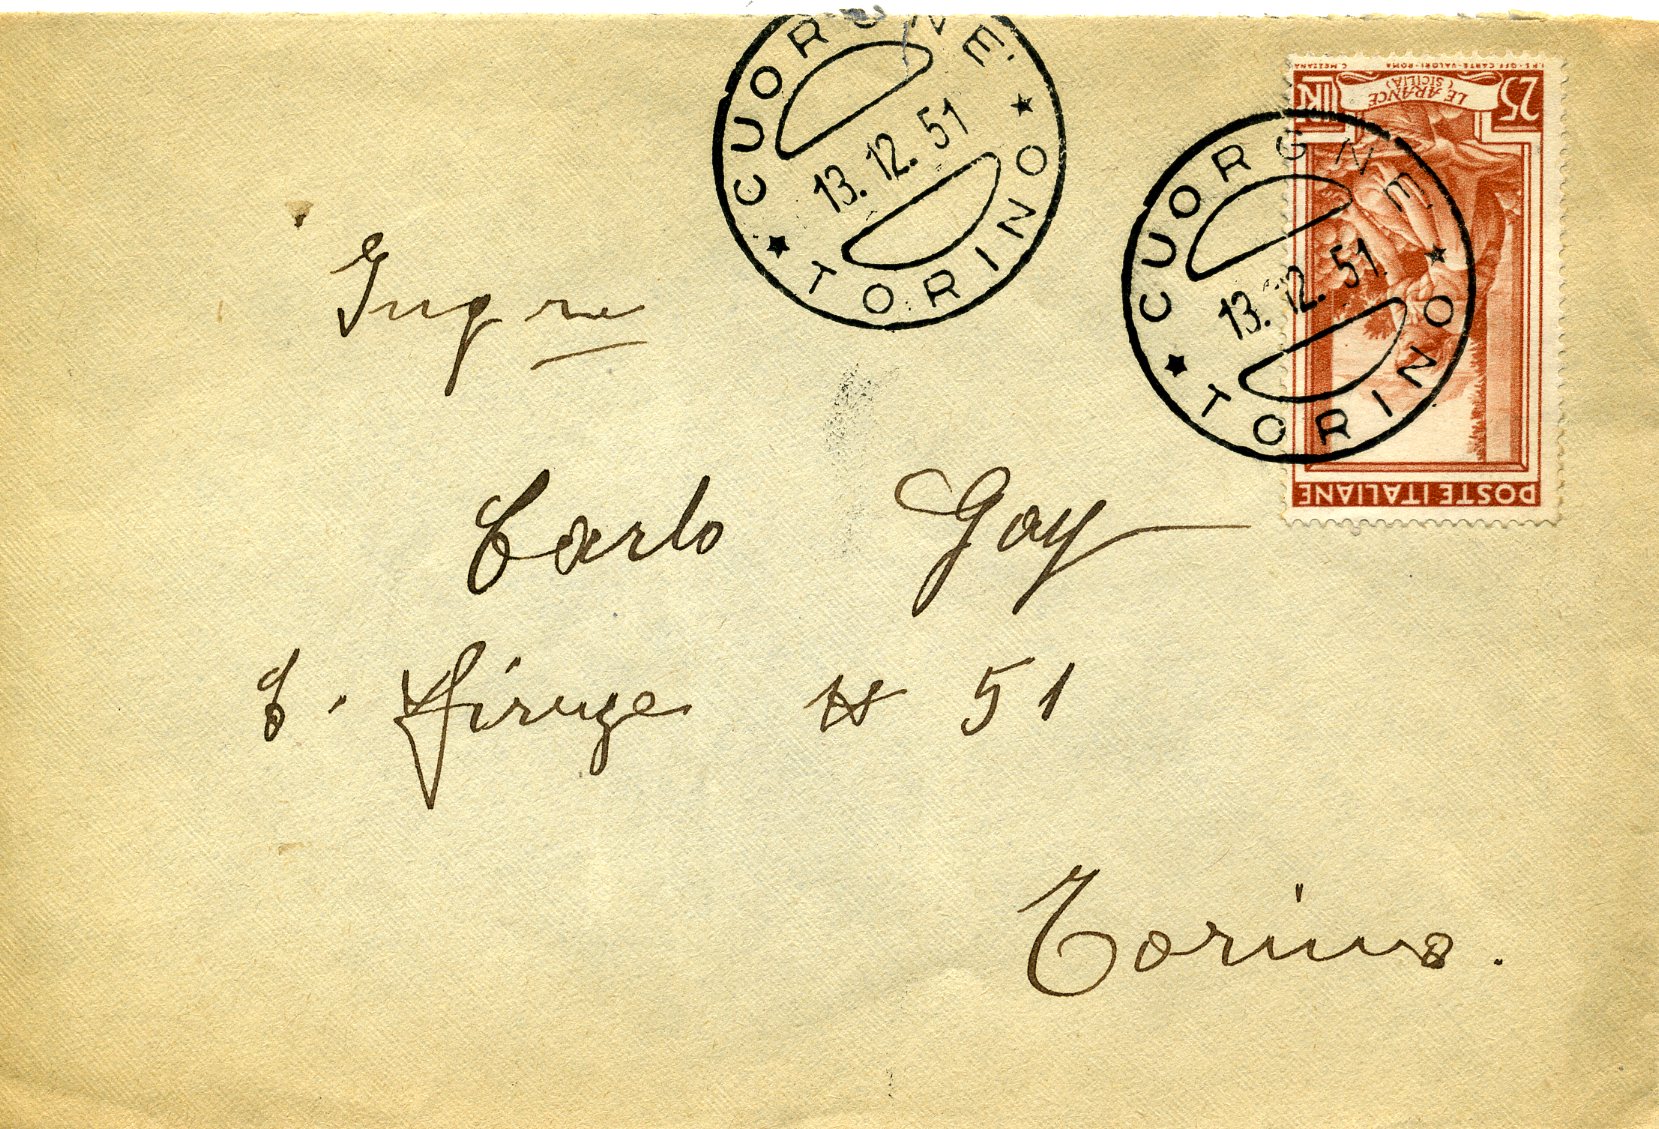 CUORGNE
13.12.51
TORINO
CUORGNE
13.12.51
TORINO
I.P.S.-OFF. CARTE-VALORI-ROMA
C. MEZZANA
25
LE ARANCE
(SICILIA)
POSTE ITALIANE
Ing re
Carlo Gay
C. Firenze N 51
Torino.